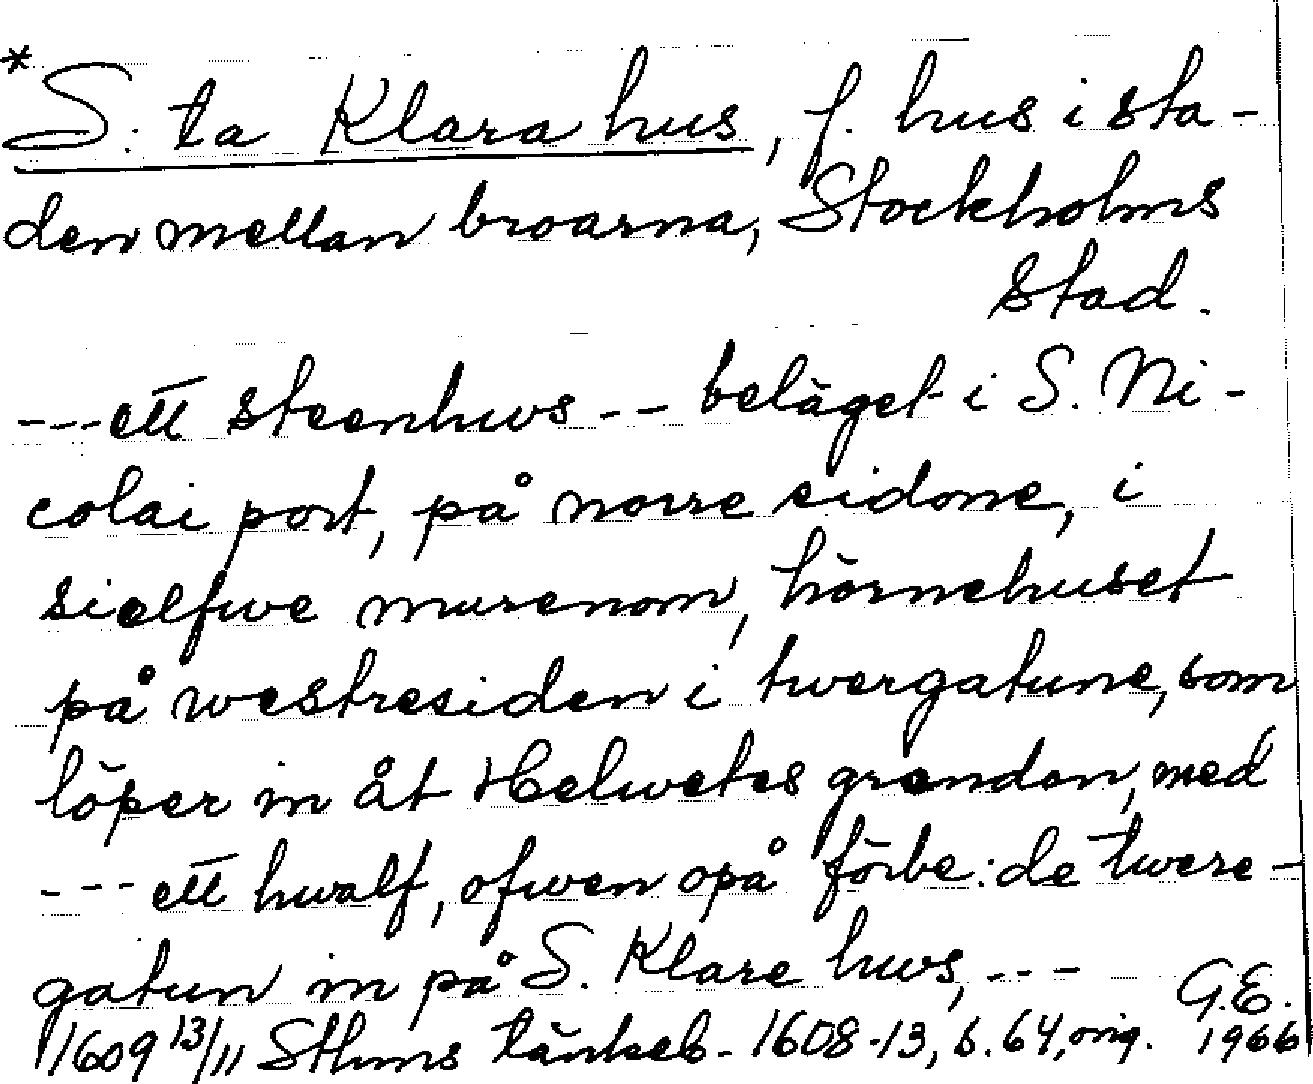 * S:ta Klara hus, f. hus i sta-
den mellan broarna, Stockholms
stad.
---ett steenhws -- beläget i S. Ni-
colai port, på norre sidone, i
sielfwe murenom, hörnehuset
på westresiden i twergatune, som
löper in åt Helwetes grenden, med
--- ett hwalf, ofwen opå förbe:de twere-
gatun in på S. Klare hws, ---
G.E.
1609 13/11 Sthms tänkeb. 1608-13, s. 64, orig. 1966